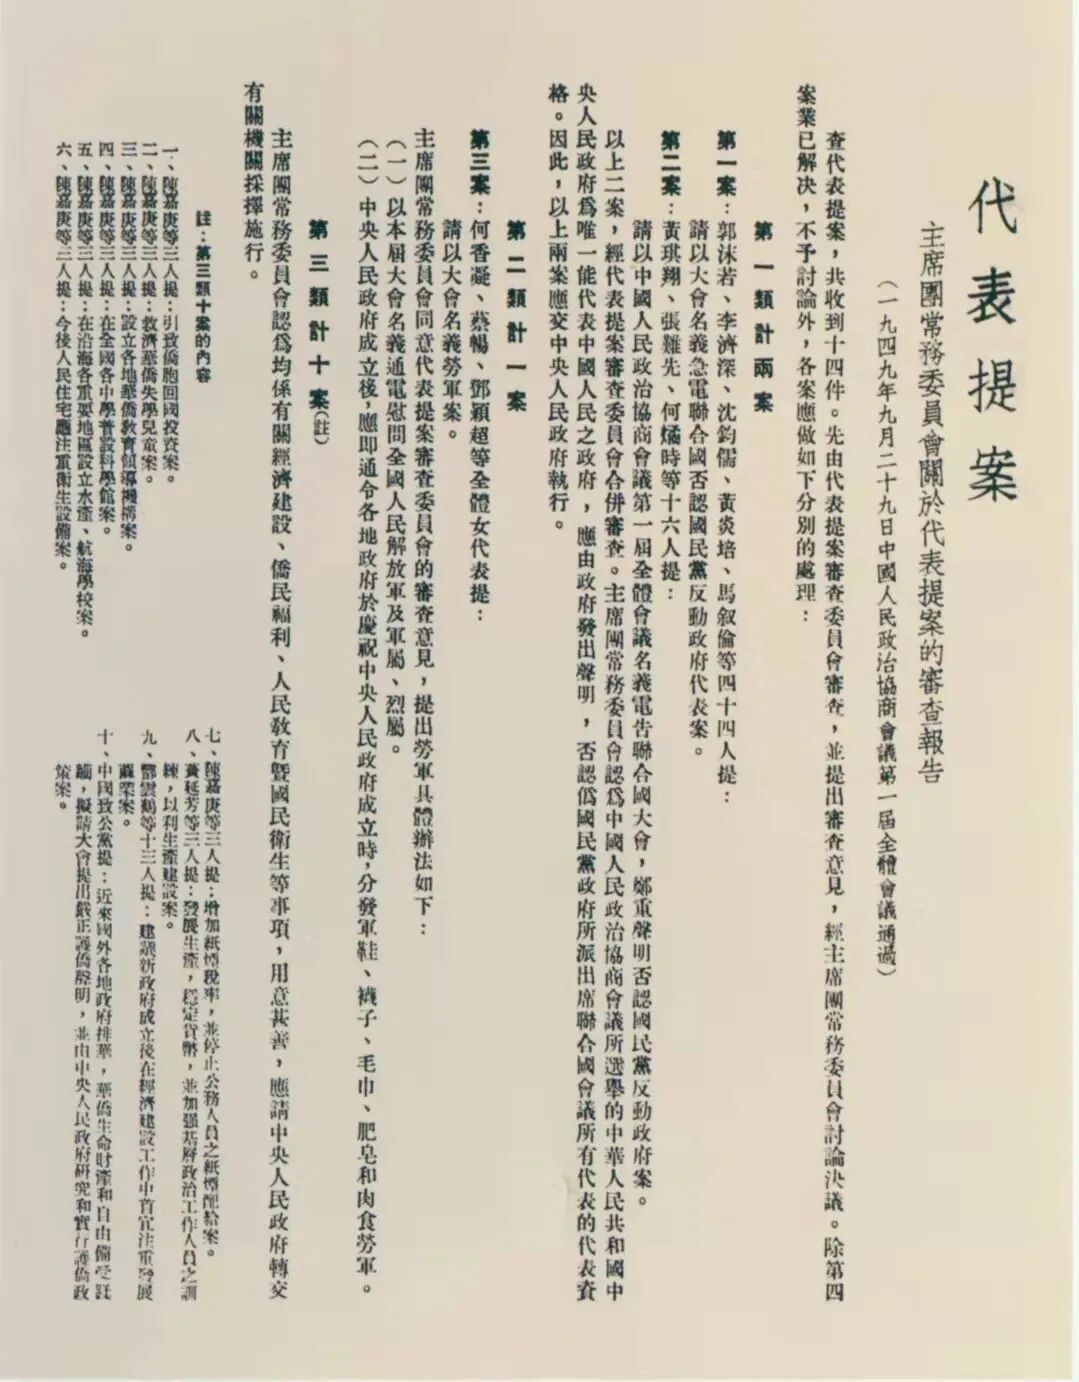 代表提案
主席團常務委員會關於代表提案的審查報告
（一九四九年九月二十九日中國人民政治協商會議第一屆全體會議通過）
查代表提案，共收到十四件。先由代表提案審查委員會審查，並提出審查意見，經主席團常務委員會討論決議。除第四
案業已解决，不予討論外，各案應做如下分別的處理：
第一類計兩案
第一案：郭沫若、李濟深、沈鈞儒、黃炎培、馬叙倫等四十四人提：
請以大會名義急電聯合國否認國民黨反動政府代表案。
第二案：黃琪翔、張難先、何燏時等十六人提：
請以中國人民政治協商會議第一屆全體會議名義電告聯合國大會，鄭重聲明否認國民黨反動政府案。
以上二案，經代表提案審查委員會合併審查。主席團常務委員會認爲中國人民政治協商會議所選舉的中華人民共和國中
央人民政府爲唯一能代表中國人民之政府，應由政府發出聲明，否認僞國民黨政府所派出席聯合國會議所有代表的代表資
格。因此，以上兩案應交中央人民政府執行。
第二類計一案
第三案：何香凝、蔡暢、鄧穎超等全體女代表提：
請以大會名義勞軍案。
主席團常務委員會同意代表提案審查委員會的審查意見，提出勞軍具體辦法如下：
（一）以本屆大會名義通電慰問全國人民解放軍及軍屬、烈屬。
（二）中央人民政府成立後，應即通令各地政府於慶祝中央人民政府成立時，分發軍鞋、襪子、毛巾、肥皂和肉食勞軍。
第三類計十案（註）
主席團常務委員會認爲均係有關經濟建設、僑民福利、人民教育暨國民衛生等事項，用意甚善，應請中央人民政府轉交
有關機關採擇施行。
註：第三類十案的內容
一、陳嘉庚等三人提：引致僑胞回國投資案。
二、陳嘉庚等三人提：救濟華僑失學兒童案。
三、陳嘉庚等三人提：設立各地華僑教育領導機構案。
四、陳嘉庚等三人提：在全國各中學普設科學館案。
五、陳嘉庚等三人提：在沿海各重要地區設立水產、航海學校案。
六、陳嘉庚等三人提：今後人民住宅應注重衛生設備案。
七、陳嘉庚等三人提：增加紙煙稅率，並停止公務人員之紙煙配給案。
八、黃延芳等三人提：發展生產，穩定貨幣，並加强基層政治工作人員之訓
練，以利生產建設案。
九、鄧雲鶴等十三人提：建議新政府成立後在經濟建設工作中首宜注重發展
蠶業案。
十、中國致公黨提：近來國外各地政府排華，華僑生命財產和自由備受蹂
躪，擬請大會提出嚴正護僑聲明，並由中央人民政府研究和實行護僑政
策案。